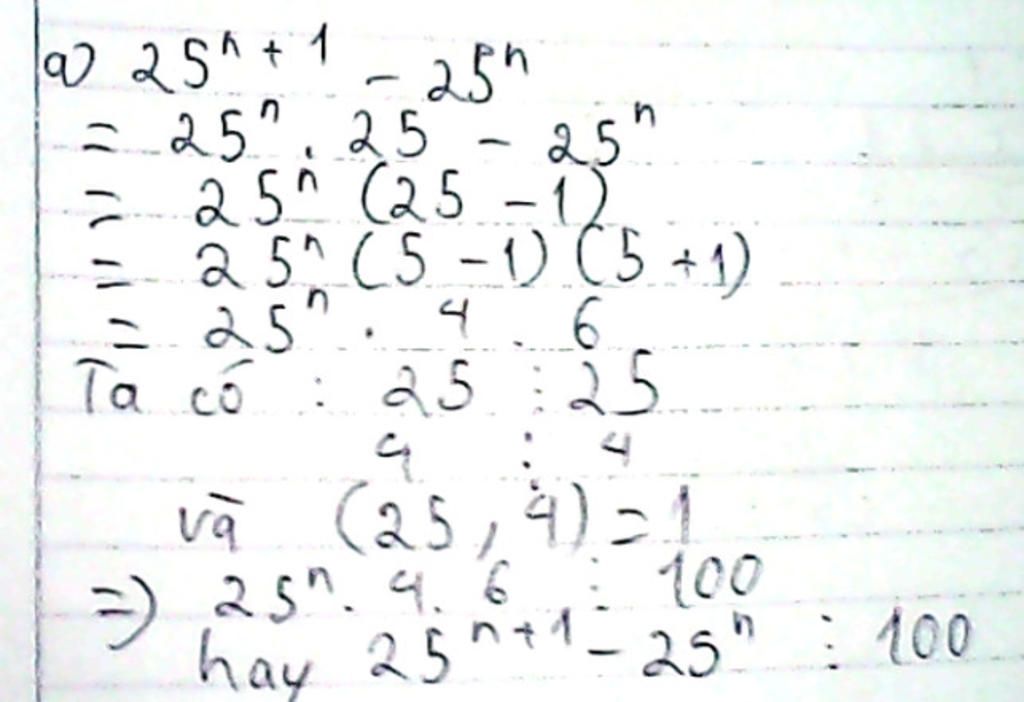 a) 25ⁿ⁺¹ - 25ⁿ
= 25ⁿ . 25 - 25ⁿ
= 25ⁿ (25 - 1)
= 25ⁿ (5 - 1) (5 + 1)
= 25ⁿ . 4 . 6
Ta có : 25 ⋮ 25
4 ⋮ 4
và (25, 4) = 1
=> 25ⁿ. 4. 6 ⋮ 100
hay 25ⁿ⁺¹ - 25ⁿ ⋮ 100